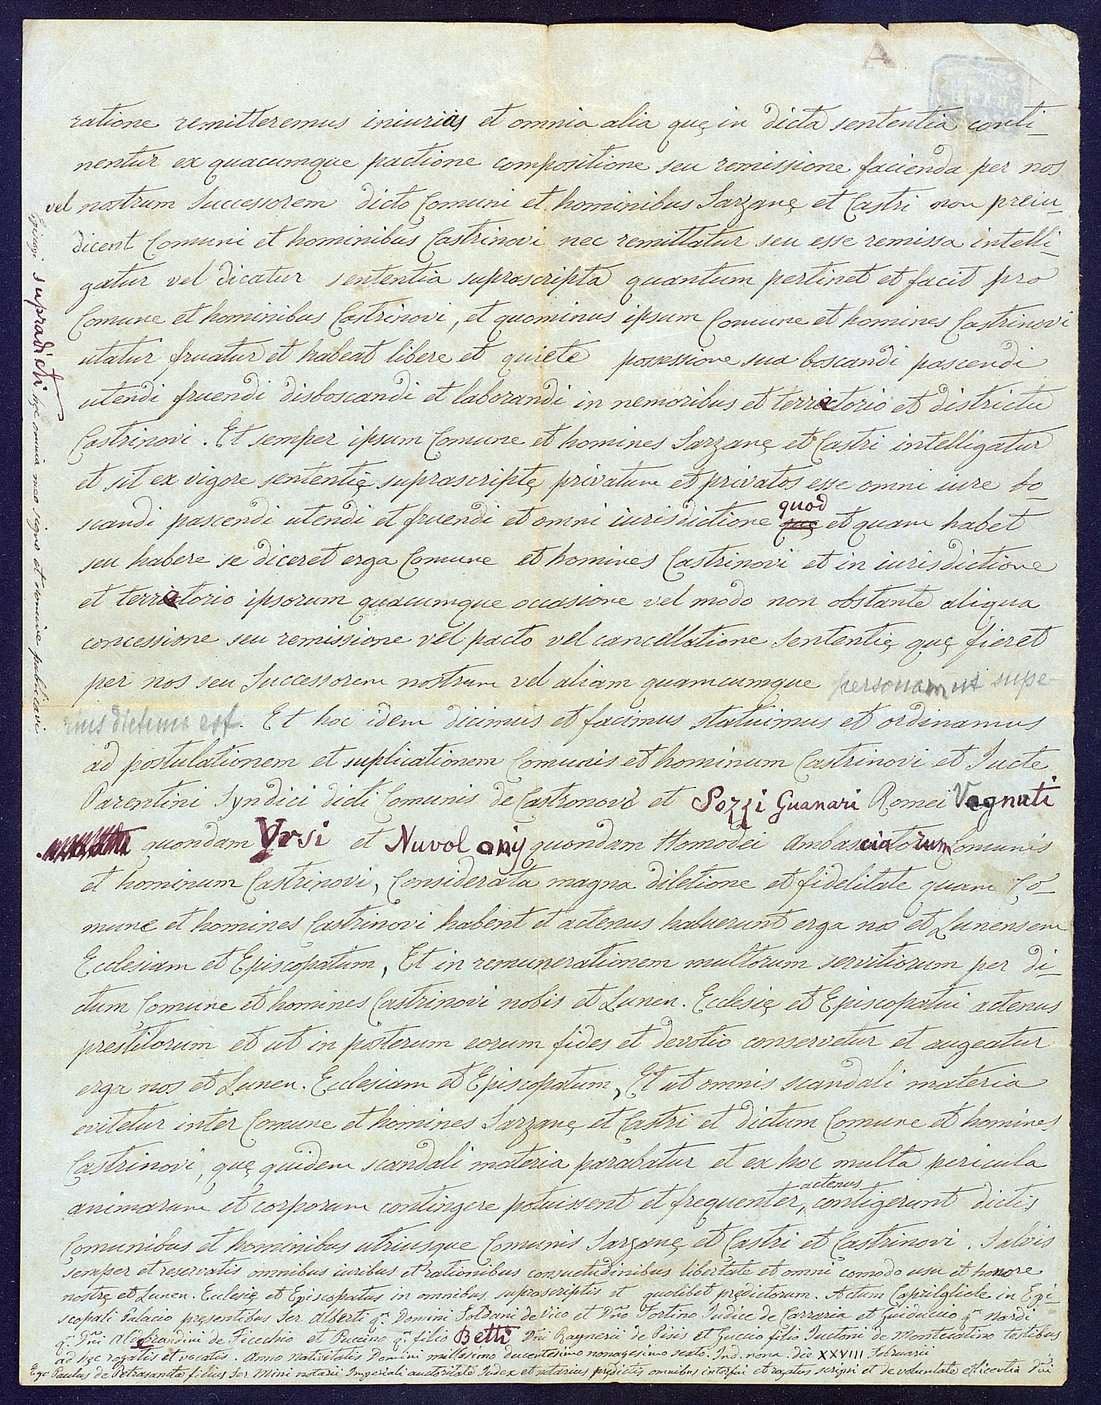 A
ratione remitteremus iniurias et omnia alia quę in dicta sententia conti-
nentur ex quacumque pactione compositione seu remissione facienda per nos
vel nostrum Successorem dicto Comuni et hominibus Sarzanę et Castri non preiu-
dicent Comuni et hominibus Castrinovi nec remittatur seu esse remissa intelli-
gatur vel dicatur sententia suprascripta quantum pertinet et facit pro
Comune et hominibus Castrinovi, et quominus ipsum Comune et homines Castrinovi
utatur fruatur et habeat libere et quiete possessione sua boscandi pascendi
utendi fruendi disboscandi et laborandi in nemoribus et territorio et districtu
Castrinovi. Et semper ipsum Comune et homines Sarzanę et Castri intelligatur
et sit ex vigore sententię suprascriptę privatum et privatos esse omni iure bo-
scandi pascendi utendi et fruendi et omni iurisdictione quod et quam habet
seu habere se diceret erga Comune et homines Castrinovi et in iurisdictione
et territorio ipsorum quacumque occasione vel modo non obstante aliqua
concessione seu remissione vel pacto vel cancellatione sententię quę fieret
per nos seu Successorem nostrum vel aliam quamcumque personam ut supe-
rius dictum est. Et hoc idem dicimus et facimus statuimus et ordinamus
ad postulationem et suplicationem Comunis et hominum Castrinovi et Iucte
Parentini Syndici dicti Comunis de Castronovo et Pozzi Guanari Romei Vagnuti
quondam Ursi et Nuvolonij quondam Homodei Ambasciatorum Comunis
et hominum Castrinovi, Considerata magna diletione et fidelitate quam Co-
mune et homines Castrinovi habent et actenus habuerunt erga nos et Lunensem
Ecclesiam et Episcopatum, Et in remunerationem multorum servitiorum per di-
ctum Comune et homines Castrinovi nobis et Lunen. Ecclesię et Episcopatui actenus
prestitorum et ut in posterum eorum fides et devotio conservetur et augeatur
erga nos et Lunen. Ecclesiam et Episcopatum, Et ut omnis scandali materia
evitetur inter Comune et homines Sarzanę et Castri et dictum Comune et homines
Castrinovi, quę quidem scandali materia parabatur et ex hoc multa pericula
animarum et corporum contingere potuissent et frequenter, actenus contigerunt dictis
Comunibus et hominibus utriusque Comunis Sarzanę et Castri et Castrinovi. Salvis
semper et reservatis omnibus iuribus et rationibus consuetudinibus libertate et omni comodo usu et honore
nostrę et Lunen. Ecclesię et Episcopatus in omnibus suprascriptis et quolibet predictorum. Actum Caprigliole in Epi-
scopali Palacio presentibus Ser Alberti q. Domini Soldani de Vico et Dno Fortino Iudice de Carraria et Guiduccio q. Nardi
q. Dni Aliebrandini de Ficechio et Puccino q. filio Betti Dni Raynerii de Pisis et Guccio filio Iuctoni de Montecatino testibus
ad hęc rogatis et vocatis. Anno nativitatis Domini millesimo ducentesimo nonagesimo sexto. Ind. nona. die XXVIII februarii
Ego Paulus de Petrasancta filius Ser Mini notarii Imperiali auctoritate Iudex et notarius predictis omnibus interfui et rogatus scripsi et de voluntate et licentia Dni
Episcopi supradicti hęc omnia meo signo et nomine publicavi